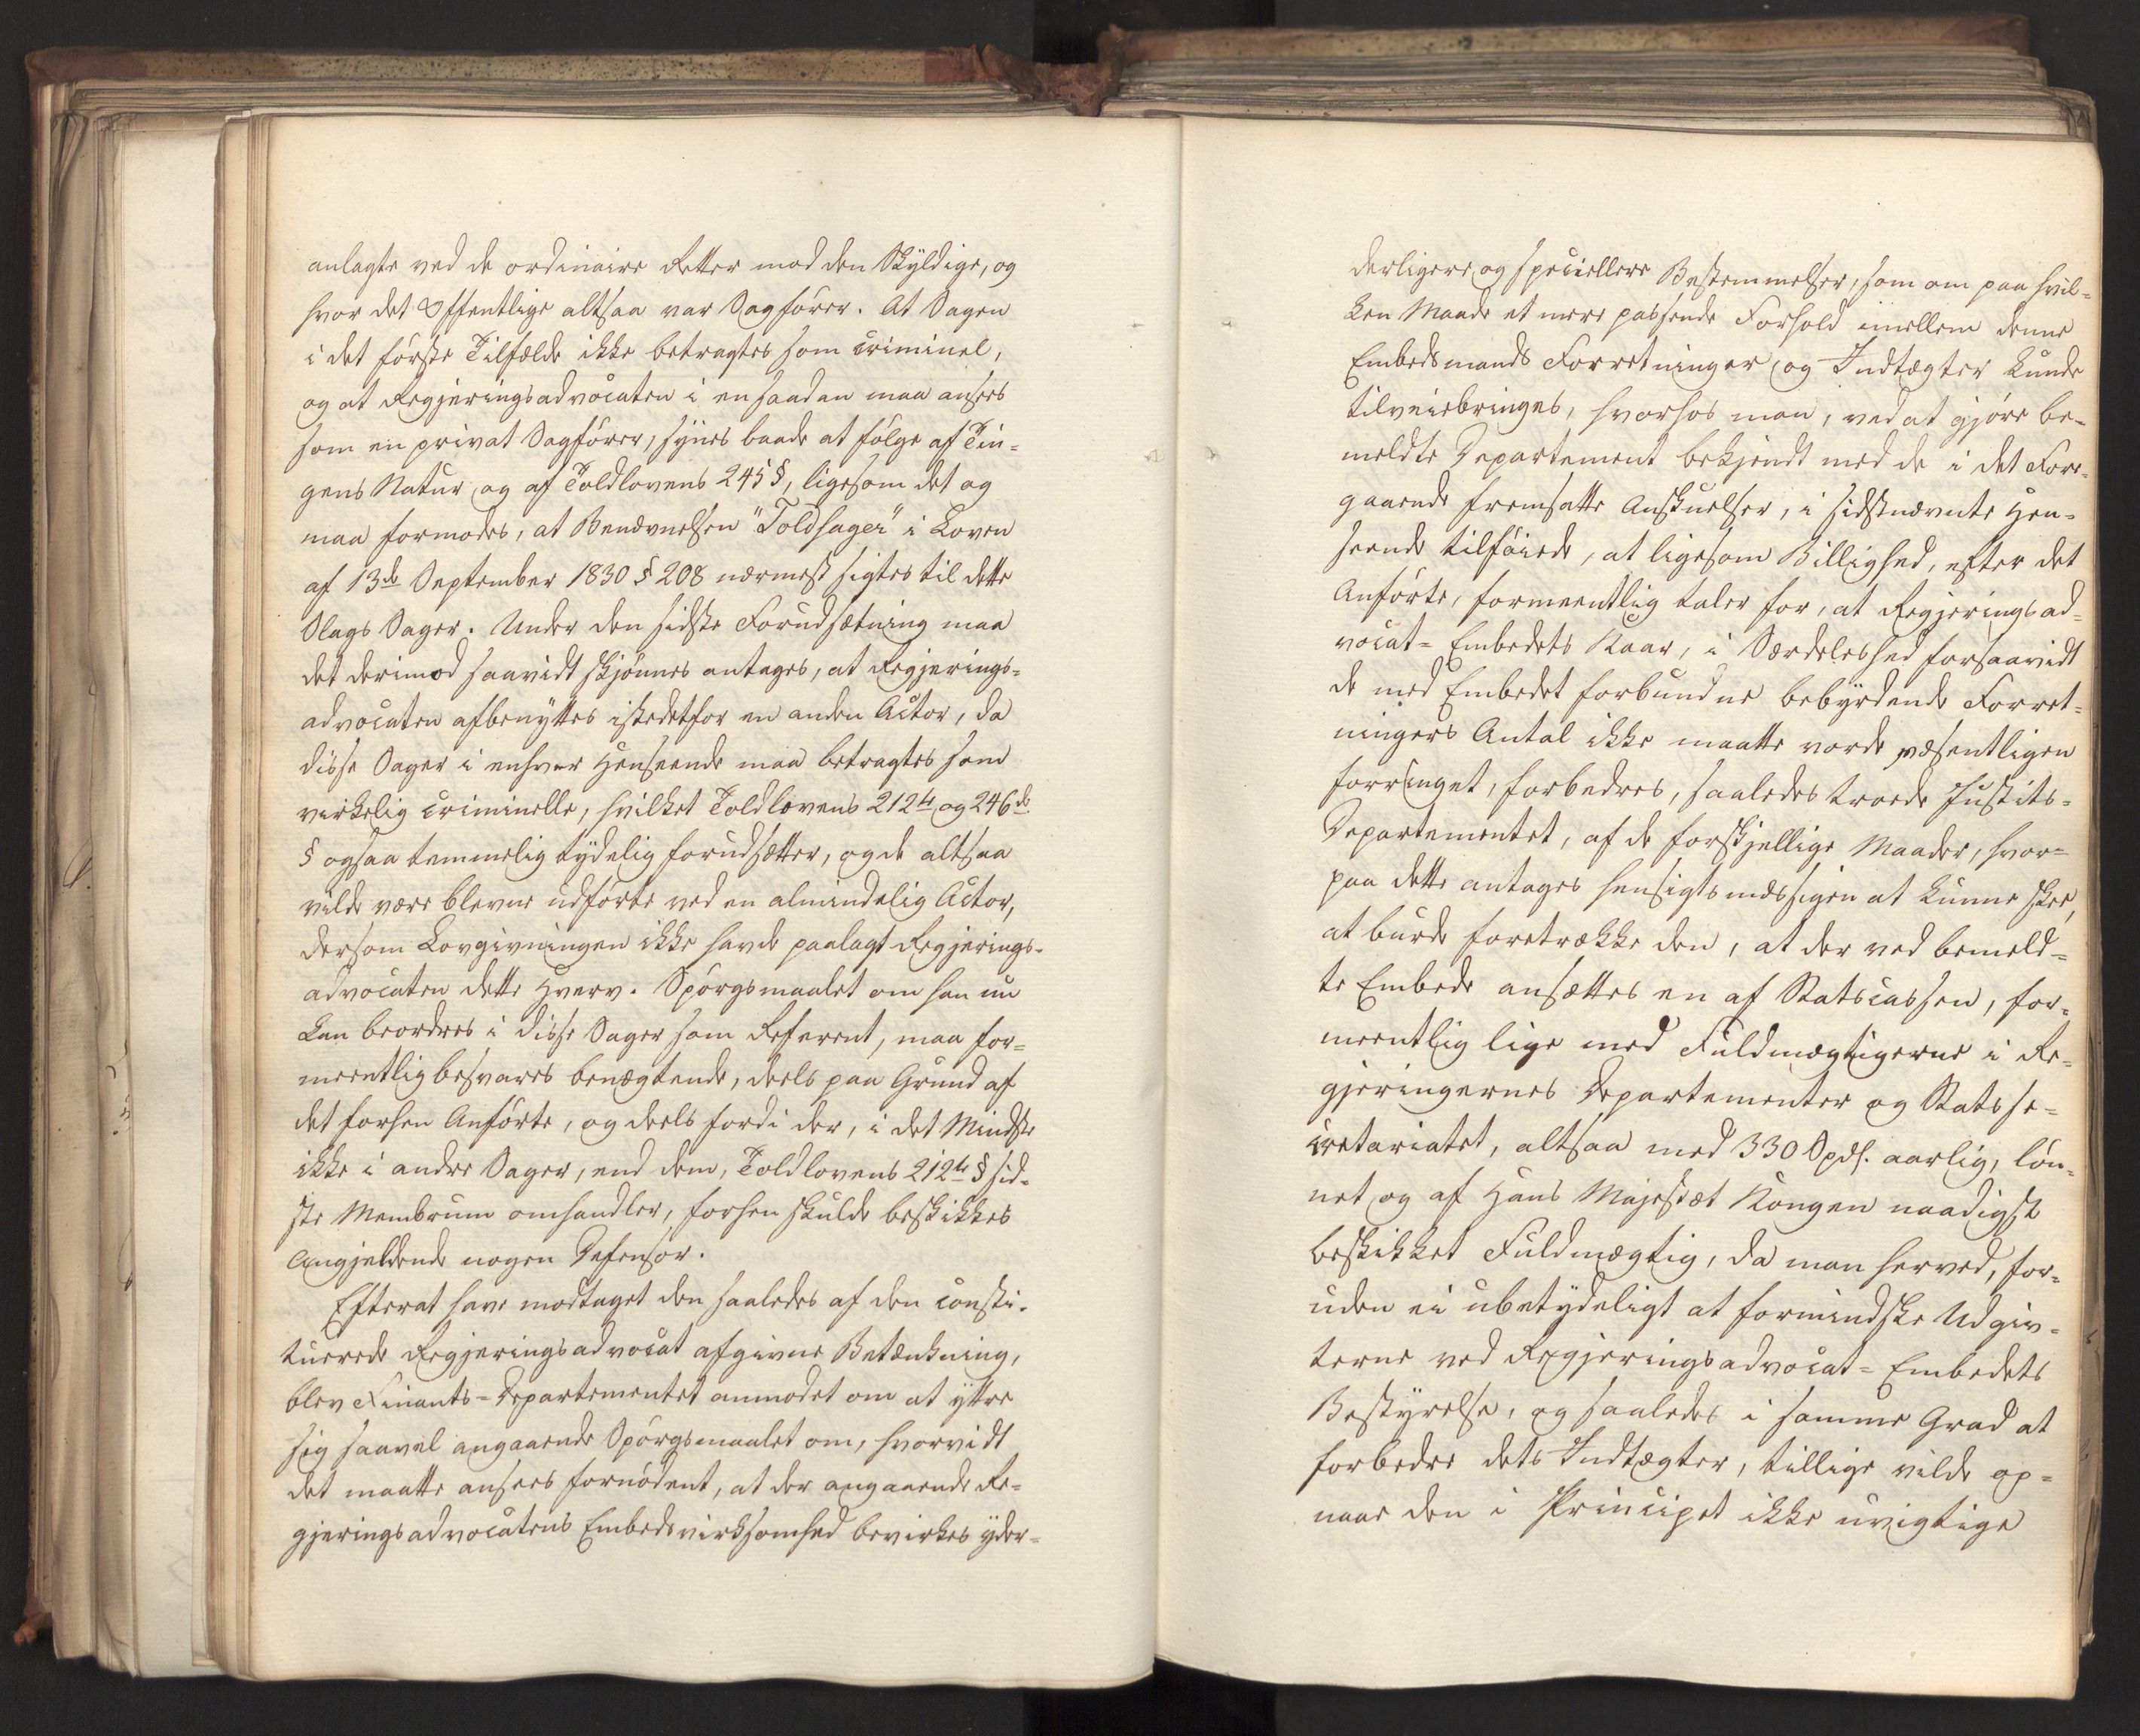 anlagte ved de ordinaire Retter mod den Skyldige, og
hvor det Offentlige altsaa var Sagfører. At Sagen
i det første Tilfælde ikke betragtes som criminel,
og at Regjeringsadvocaten i en saadan maa ansees
som en privat Sagfører, synes baade at følge af Tin-
gens Natur og af Toldlovens 245 §, ligesom det og
maa formodes, at Benævnelsen "Toldsager" i Loven
af 13de September 1830 § 208 nærmest sigtes til dette
Slags Sager. Under den sidste Forudsætning maa
det derimod saavidt skjønnes antages, at Regjerings-
advocaten afbenyttes istedetfor en anden Actor, da
disse Sager i enhver Henseende maa betragtes som
virkelig criminelle, hvilket Toldlovens 212te og 246de
§ ogsaa temmelig tydelig forudsætter, og de altsaa
vilde være blevne udførte ved en almindelig Actor,
dersom Lovgivningen ikke havde paalagt Regjerings-
advocaten dette Hverv. Spørgsmaalet om han nu
kan beordres i disse Sager som Referent, maa for-
meentlig besvares benægtende, deels paa Grund af
det forhen Anførte, og deels fordi der, i det Mindste
ikke i andre Sager, end dem, Toldlovens 212te § sid-
ste Membrum omhandler, forhen skulde beskikkes
Angjeldende nogen Defensor.
Efterat have modtaget den saaledes af den consti-
tuerede Regjeringsadvocat afgivne Betænkning,
blev Finants-Departementet anmodet om at yttre
sig saavel angaaende Spørgsmaalet om, hvorvidt
det maatte ansees fornødent, at der angaaende Re-
gjeringsadvocatens Embedsvirksomhed bevirkes yder-
derligere og speciellere Bestemmelser, som om paa hvil-
ken Maade et mere passende Forhold imellem denne
Embedsmands Forretninger og Indtægter kunde
tilveiebringes, hvorhos man, ved at gjøre be-
meldte Departement bekjendt med de i det Fore-
gaaende fremsatte Anskuelser, i sidstnævnte Hen-
seende tilføiede, at ligesom Billighed, efter det
Anførte, formeentlig taler for, at Regjeringsad-
vocat-Embedets Kaar, i Særdeleshed forsaavidt
de med Embedet forbundne bebyrdende Forret-
ningers Antal ikke maatte vorde væsentligen
forringet, forbedres, saaledes troede Justits-
Departementet, af de forskjellige Maader, hvor-
paa dette antages hensigtsmæssigen at kunne skee,
at burde foretrække den, at der ved bemeld-
te Embede ansættes en af Statscassen, for-
meentlig lige med Fuldmægtigerne i Re-
gjeringernes Departementer og Statsse-
cretariatet, altsaa med 330 Spdl. aarlig, løn-
net og af Hans Majestæt Kongen naadigst
beskikket Fuldmægtig, da man herved, for-
uden ei ubetydeligt at formindske Udgiv-
terne ved Regjeringsadvocat-Embedets
Bestyrelse, og saaledes i samme Grad at
forbedre dets Indtægter, tillige vilde op-
naae den i Principet ikke uvigtige